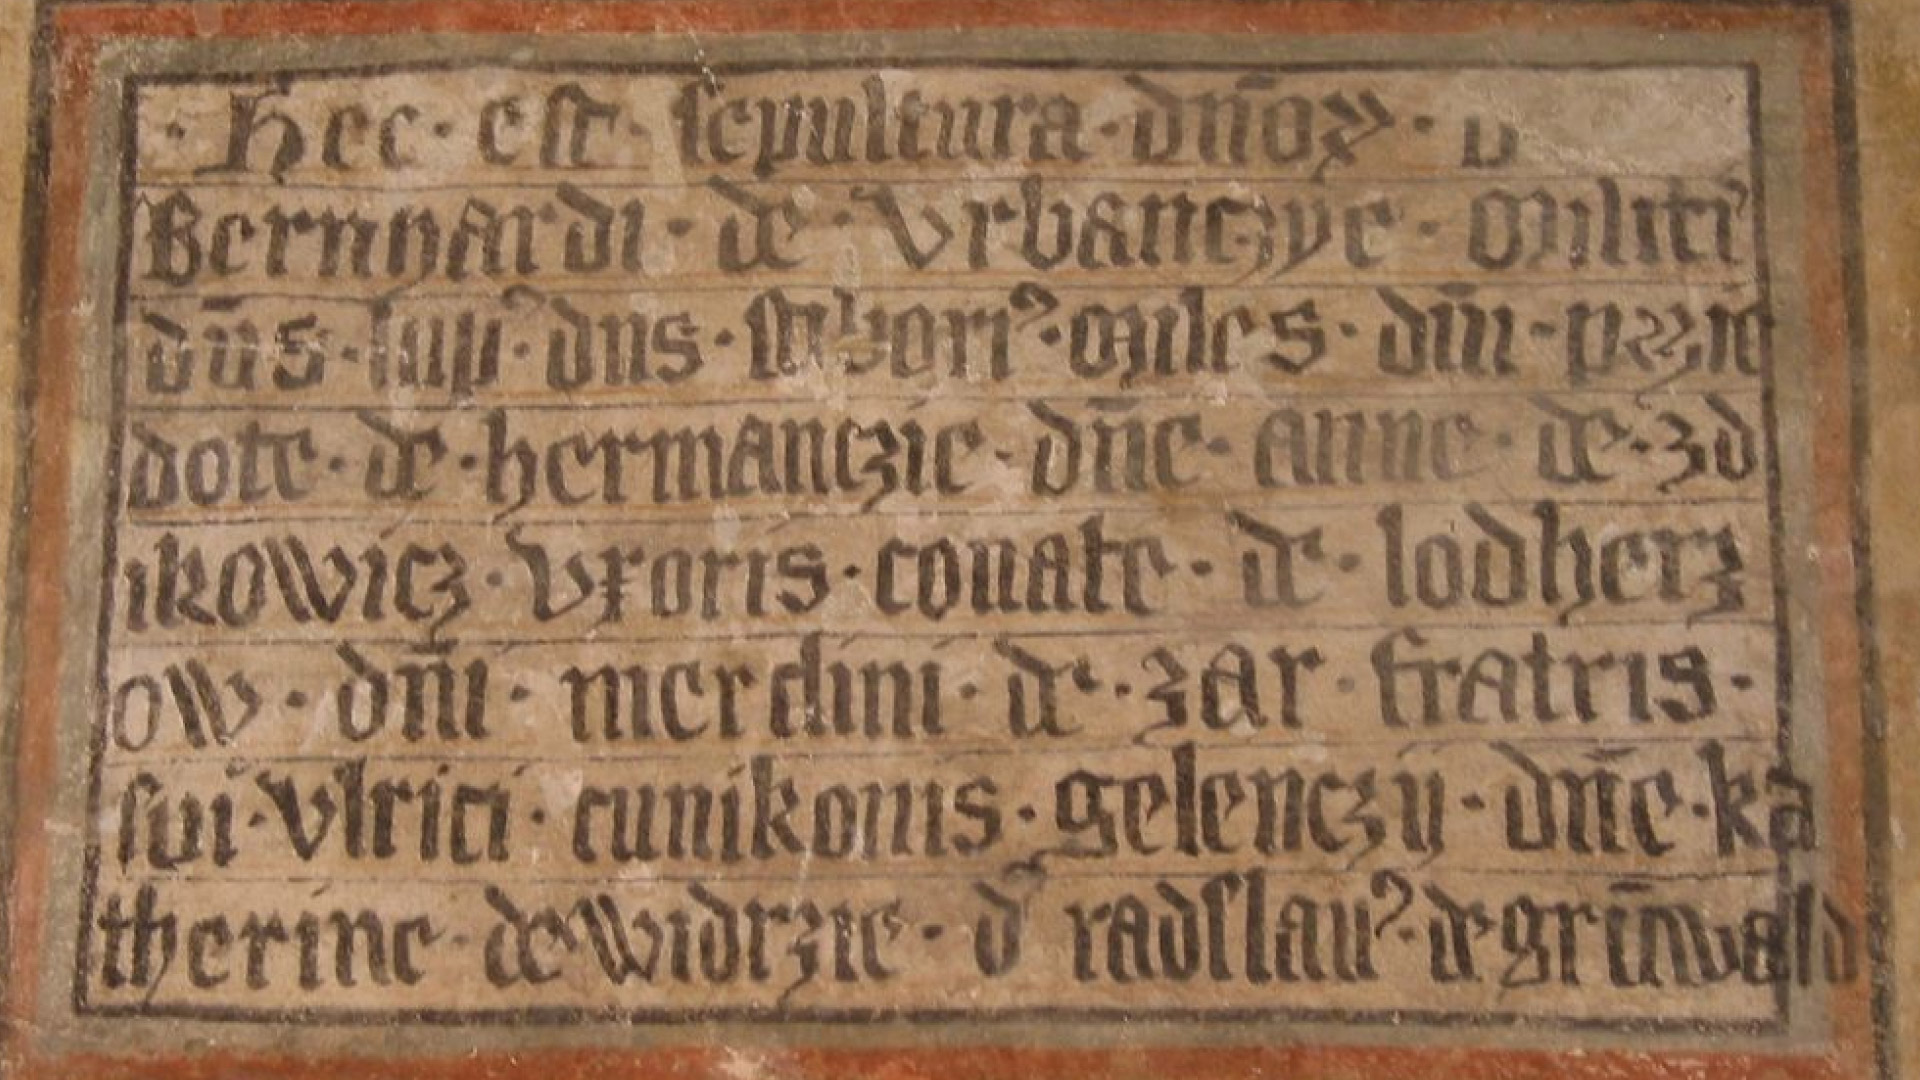 · Hec · est · sepultura · dn̄oꝝ ·
Bernhardi · de · Vrbanczye ·
dn̄s · dns · Miles · dn̄i ·
dote · de · hermanczie · dn̄e · anne · de · zd
ikowicz · Vxoris · conate · de · lodherz
ow · dn̄i · merclini · de · zar · fratris ·
sui · Vlrici · cunikonis · gelenczij · dn̄e · ka
therine · de widrzie · radslauꝰ · de grūwald